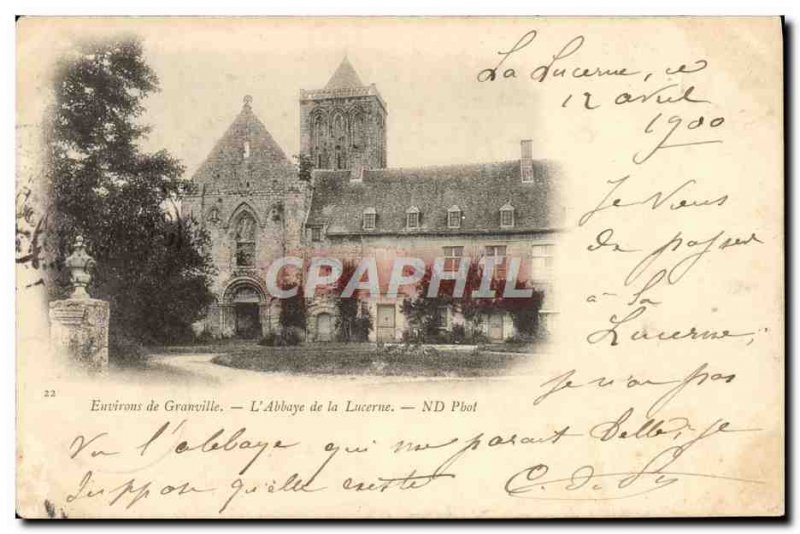 La Lucerne, ce
12 avril
1900
Je viens
de passer
à la
Lucerne;
je n'ai pas
vu l'abbaye qui me parait belle, je
suppose qu'elle existe
CPAPHIL
22
Environs de Granville. — L'Abbaye de la Lucerne. — ND Phot